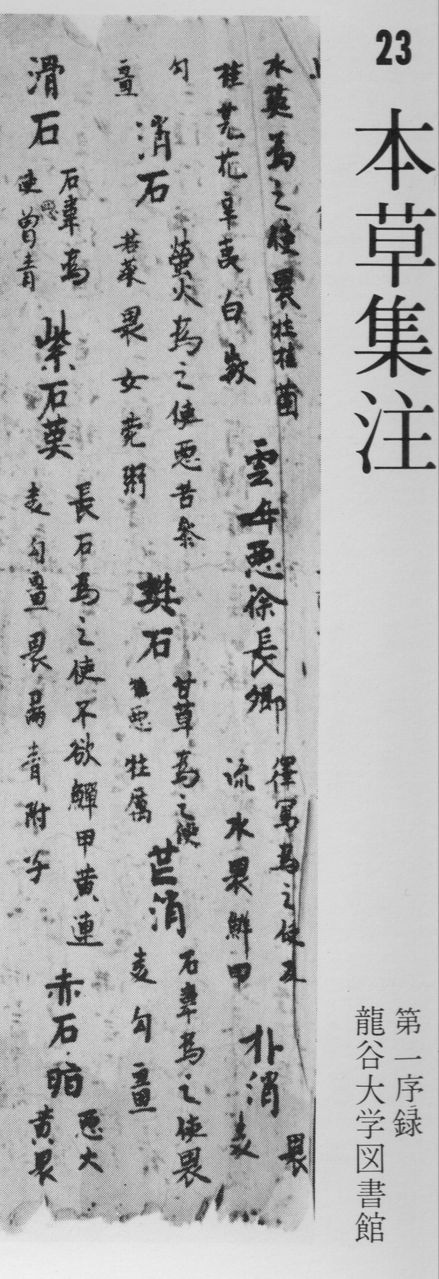 23
本草集注
第一序録
龍谷大学図書館
水英為之使畏牡桂菌
桂芫花辛夷白斂
雲母惡徐長卿
澤寫為之使及
流水畏鮮甲
朴消
畏
麦
勾
畺
消石
螢火為之使惡苦参
苦菜畏女菀粥
礬石
甘草為之使
惡牡厲
芒消
石韋為之使畏
麦勾畺
滑石
石韋為
使惡曽青
紫石英
長石為之使不欲鱓甲黄連
麦勾畺畏扁青附子
赤石脂
惡大
黄畏